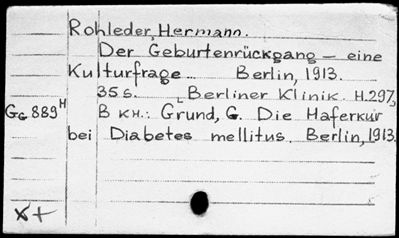 Rohleder, Hermann.
Der Geburtenrückgang – eine
Kulturfrage. Berlin, 1913.
35 s. Berliner Klinik. H.297,
Gg 889 H В кн.: Grund, G. Die Haferkur
bei Diabetes mellitus. Berlin, 1913.